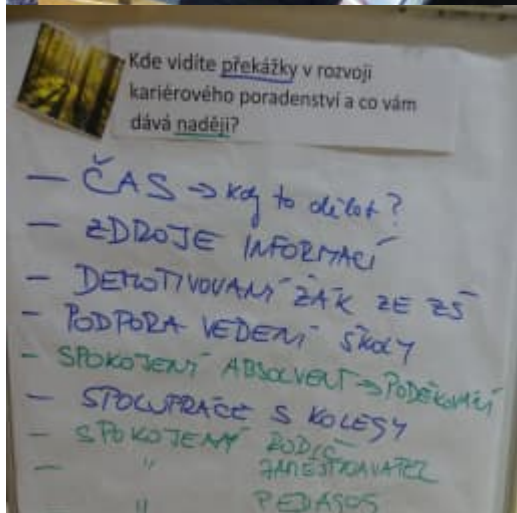 Kde vidíte překážky v rozvoji
kariérového poradenství a co vám
dává naději?
– ČAS → kdy to dělat?
– ZDROJE INFORMACÍ
– DEMOTIVOVANÝ ŽÁK ZE ZŠ
– PODPORA VEDENÍ ŠKOLY
– SPOKOJENÝ ABSOLVENT → PODĚKOVÁNÍ
– SPOLUPRÁCE S KOLEGY
– SPOKOJENÝ RODIČ
– " ZAMĚSTNAVATEL
" PEDAGOG